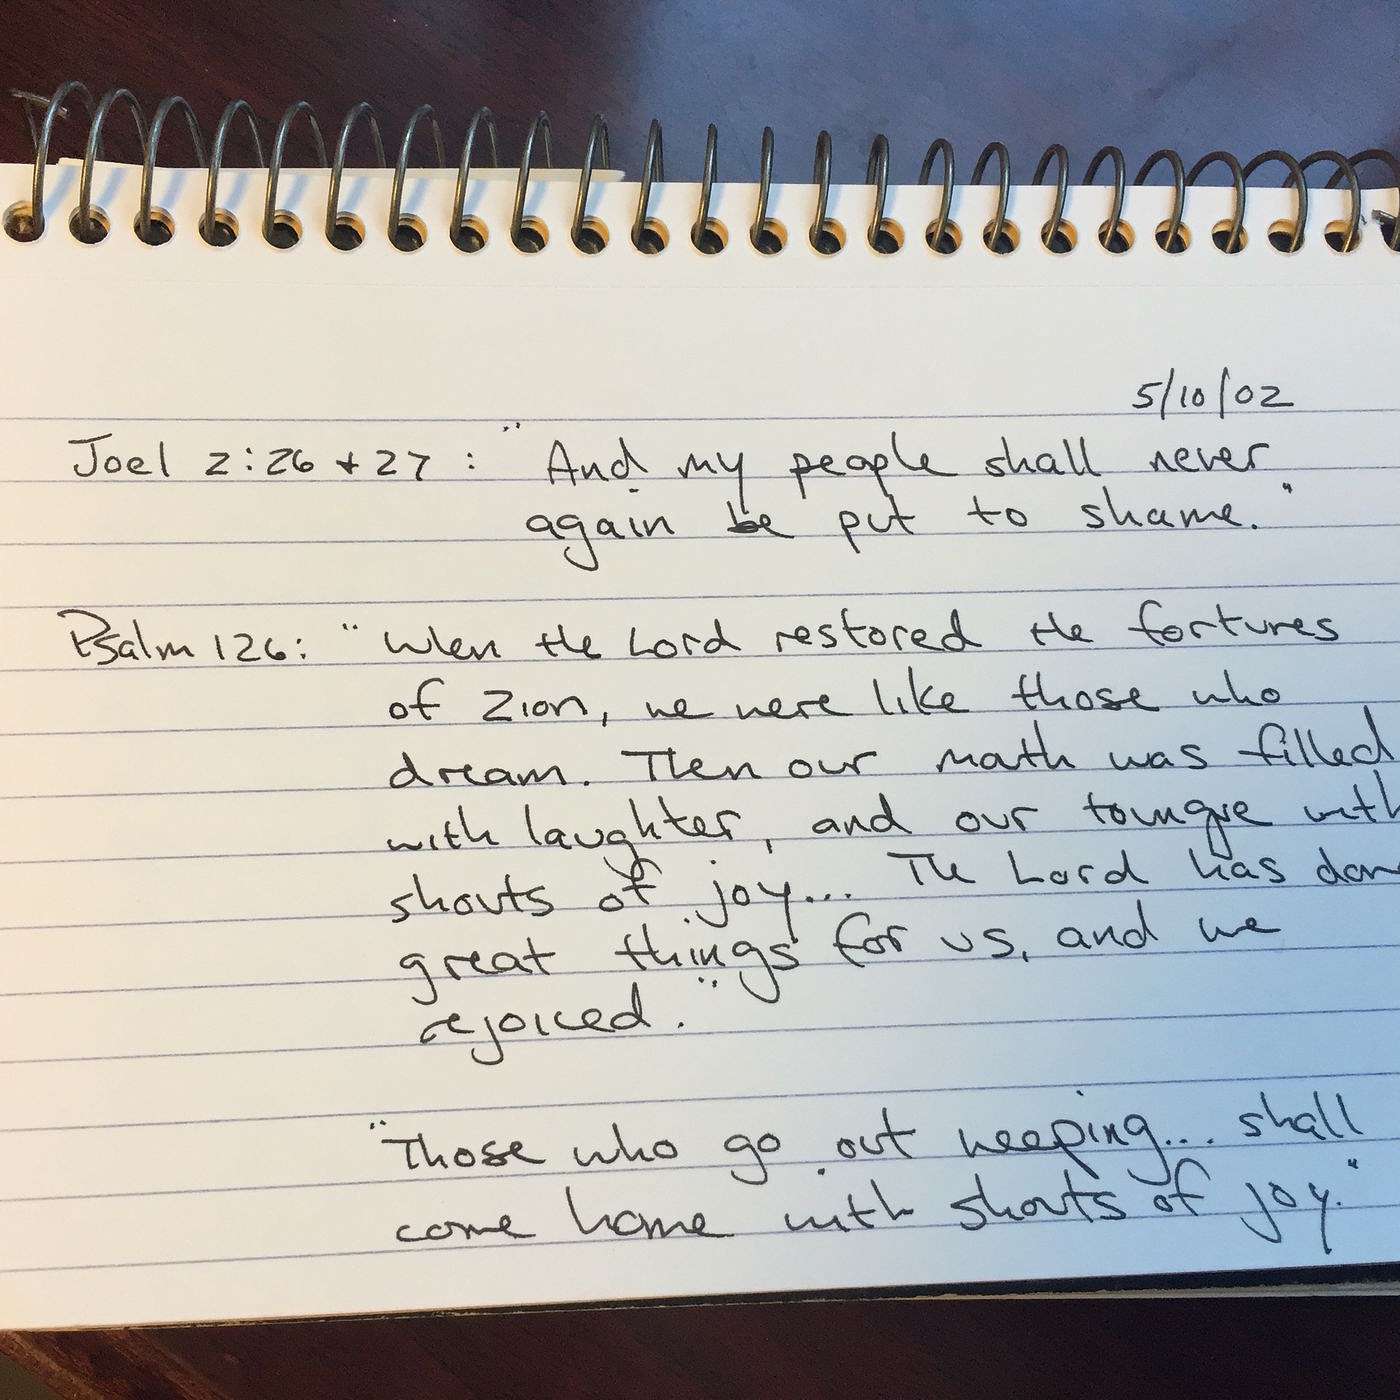 5/10/02
Joel 2:26 + 27 : "And my people shall never
again be put to shame."
Psalm 126: "When the Lord restored the fortunes
of Zion, we were like those who
dream. Then our mouth was filled
with laughter, and our toungue with
shouts of joy... The Lord has done
great things for us, and we
rejoiced."
"Those who go out weeping... shall
come home with shouts of joy."